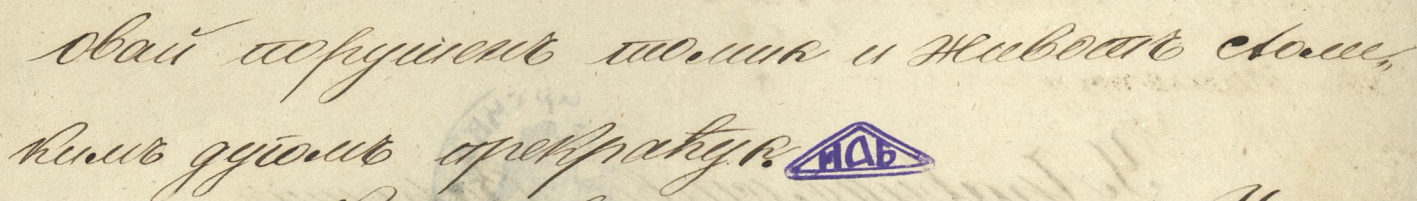 овай порушенъ томик и животъ толи„
кимъ дугомъ прекраћук.
ИАБ